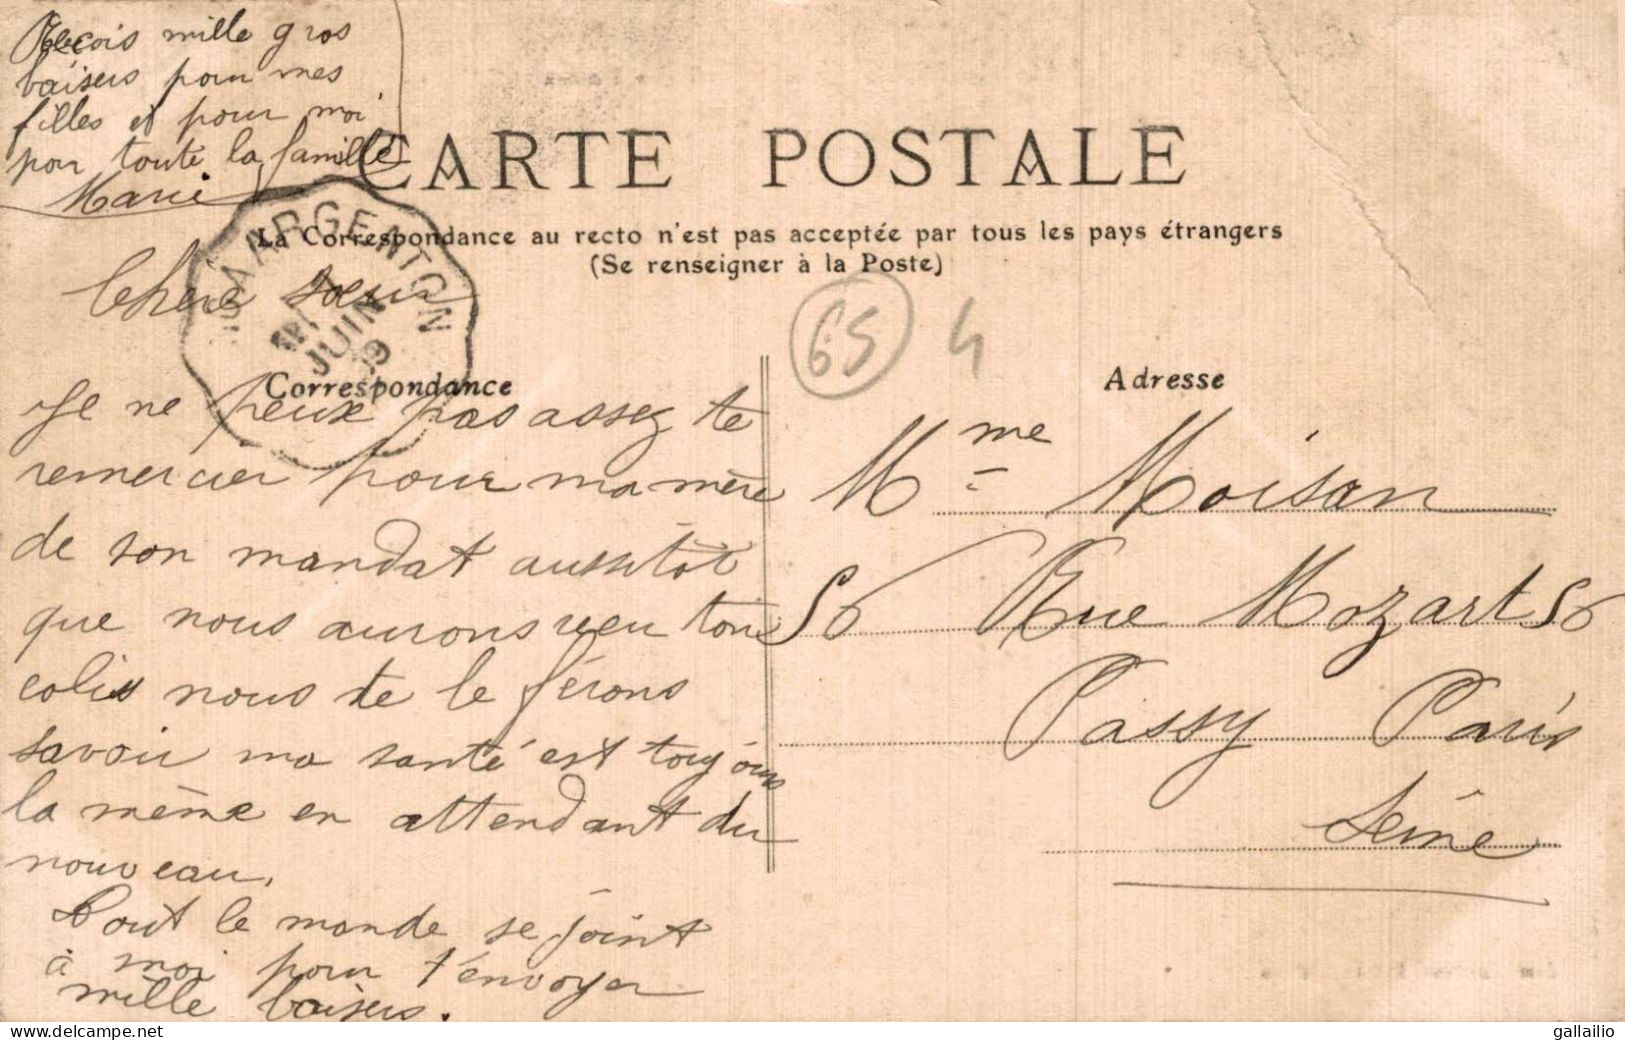 Reçois mille gros
baisers pour mes
filles et pour moi
pour toute la famille
Marie
CARTE POSTALE
La Correspondance au recto n'est pas acceptée par tous les pays étrangers
(Se renseigner à la Poste)
À ARGENTON
JUIN
Correspondance
Chere soeur
Je ne peux pas assez te
remercier pour ma mère
de son mandat aussitôt
que nous aurons reçu ton
colis nous te le férons
savoir ma santé est toujours
la même en attendant du
nouveau.
Tout le monde se joint
à moi pour t'envoyer
mille baisers.
65
4
Adresse
Mme Moisan
56 Rue Mozart 56
Passy Paris
Seine
delcampe.net
gallailio